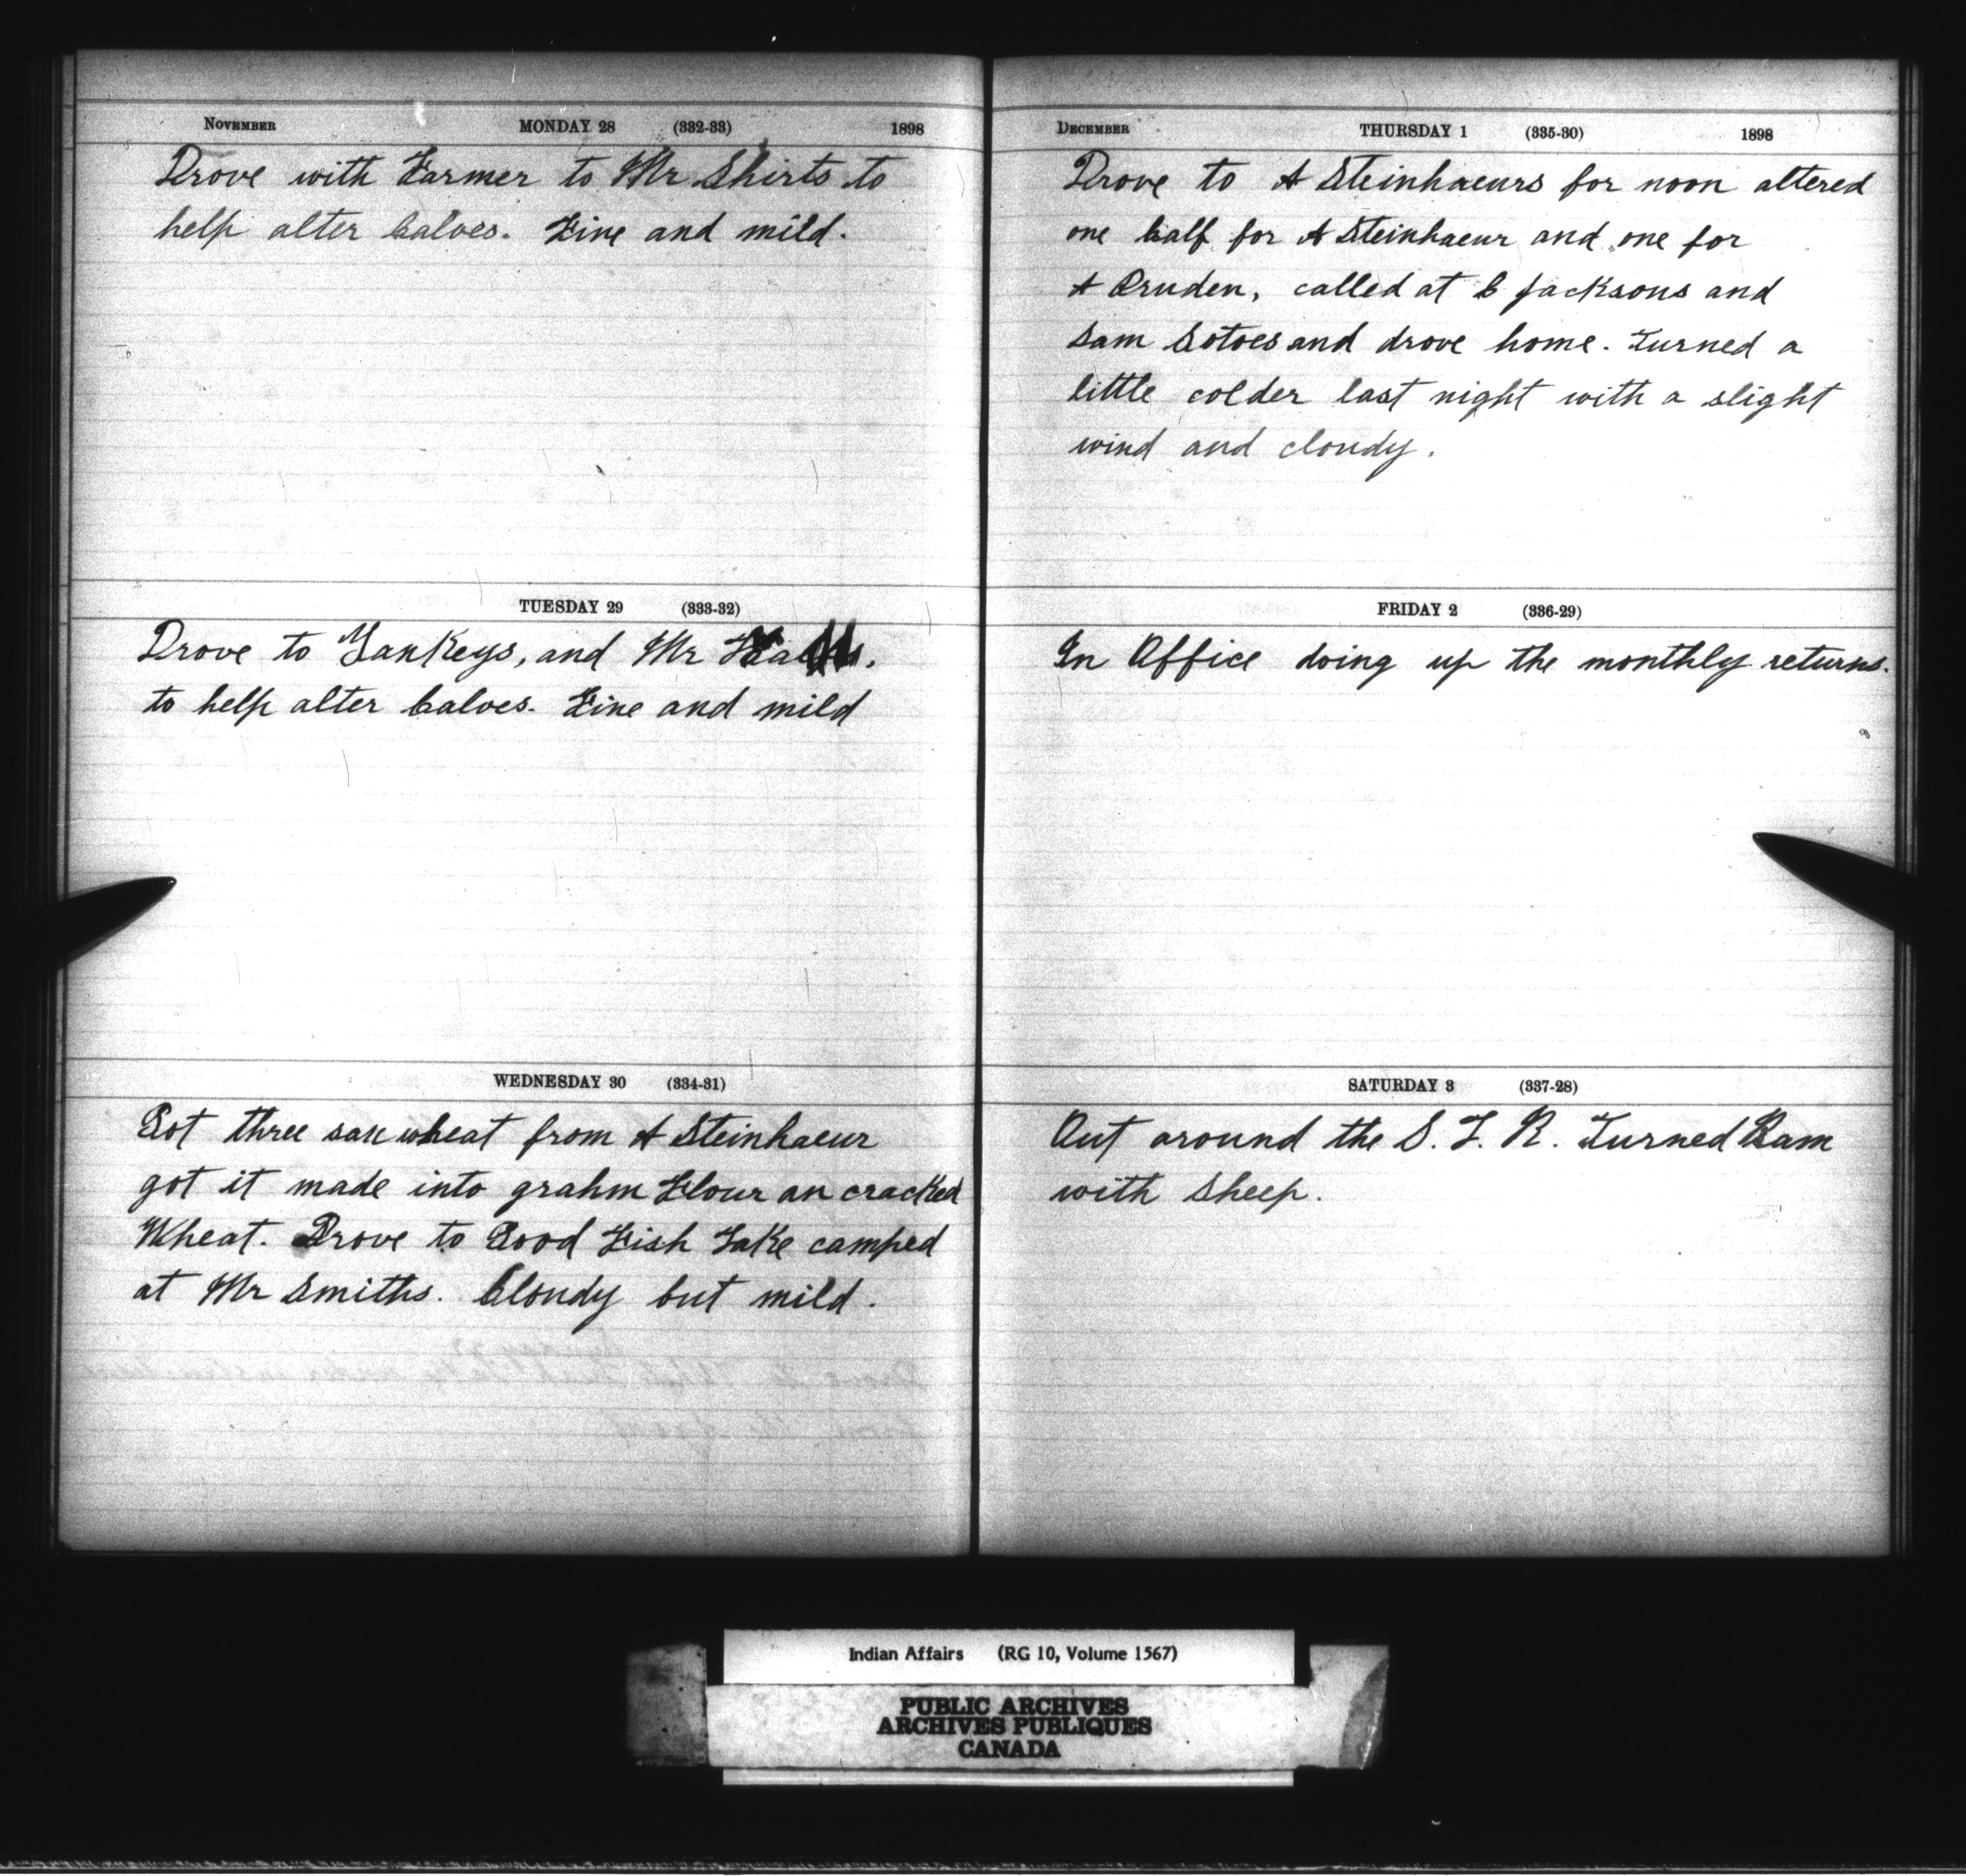 NOVEMBER MONDAY 28 (332-33) 1898
Drove with Farmer to Mr Shirts to
help alter Calves. Fine and mild.
TUESDAY 29 (333-32)
Drove to Yankeys, and Mr
to help alter Calves. Fine and mild
WEDNESDAY 30 (334-31)
Got three sax wheat from A Steinhaeur
got it made into grahm Flour an cracked
Wheat. Drove to Good Fish Lake camped
at Mr Smiths. Cloudy but mild.
DECEMBER THURSDAY 1 (335-30) 1898
Drove to A Steinhaeurs for noon altered
one Calf for A Steinhaeur and one for
A Pruden, called at C Jacksons and
Sam Sotoes and drove home. Turned a
little colder last night with a slight
wind and cloudy.
FRIDAY 2 (336-29)
In Office doing up the monthly returns.
SATURDAY 3 (337-28)
Out around the S. L. R. Turned Ram
with Sheep.
Indian Affairs (RG 10, Volume 1567)
PUBLIC ARCHIVES
ARCHIVES PUBLIQUES
CANADA